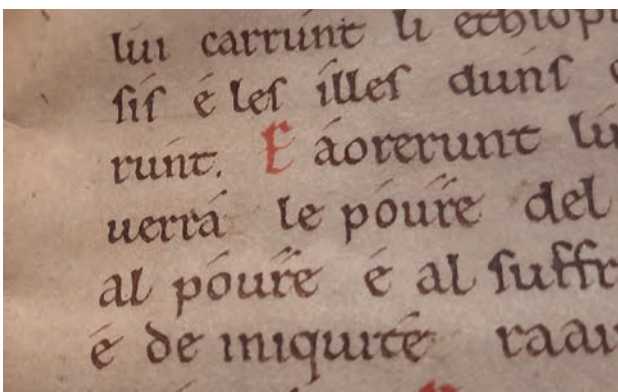 lui carrunt li ethiopi
ſiſ é leſ illeſ dunſ
runt. E áorerunt lu
uerrá le póure del
al póure é al ſuffr
é de iniquité raa